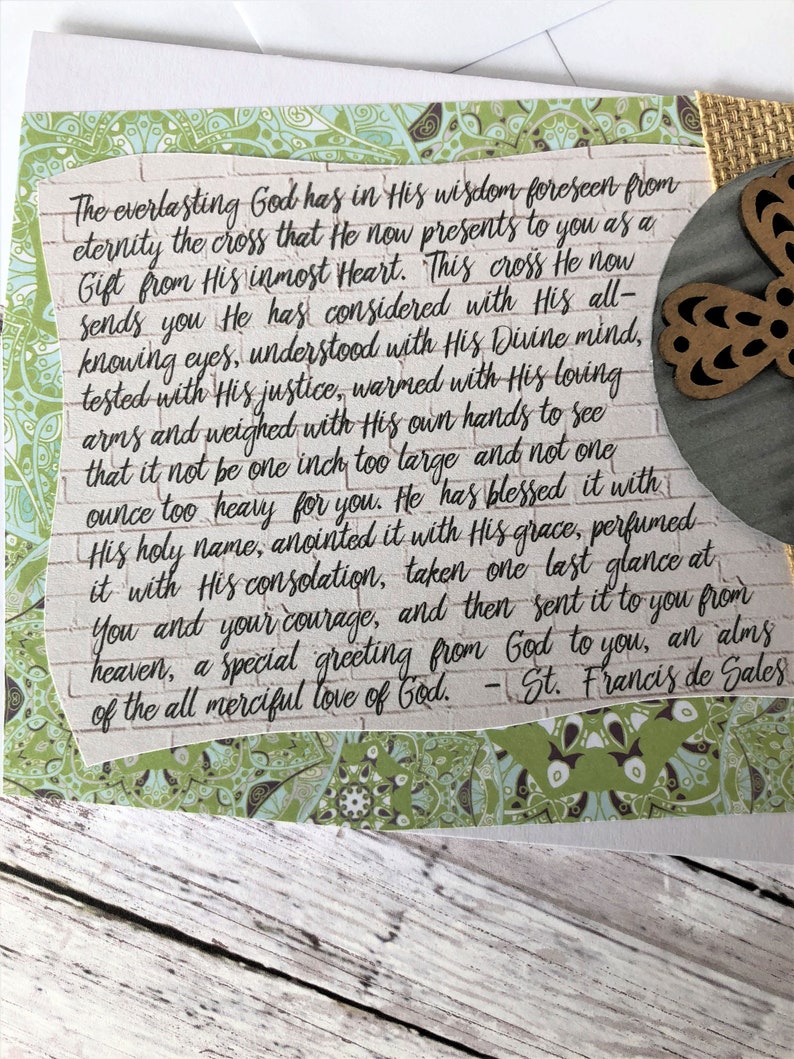 The everlasting God has in His wisdom foreseen from
eternity the cross that He now presents to you as a
Gift from His inmost Heart. This cross He now
sends you He has considered with His all-
knowing eyes, understood with His Divine mind,
tested with His justice, warmed with His loving
arms and weighed with His own hands to see
that it not be one inch too large and not one
ounce too heavy for you. He has blessed it with
His holy name, anointed it with His grace, perfumed
it with His consolation, taken one last glance at
You and your courage, and then sent it to you from
heaven, a special greeting from God to you, an alms
of the all merciful love of God. - St. Francis de Sales